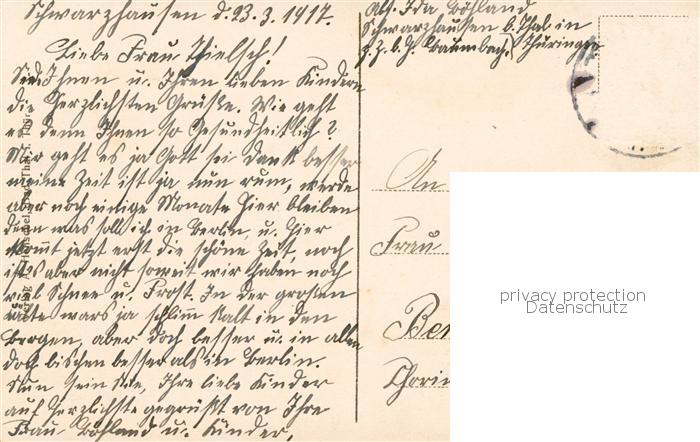 Schwarzhausen d. 23.3.1917.
Liebe Frau Thielsch!
Sende Ihnen u. Ihren lieben Kindern
die herzlichsten Grüße. Wie geht
es denn Ihnen so Gesundheitlich?
Mir geht es ja Gott sei dank besser
meine Zeit ist ja nun rum, werde
aber noch einige Monate hier bleiben
denn was soll ich in Berlin, u. hier
kommt jetzt erst die schöne Zeit, noch
ist es aber nicht soweit wir haben noch
viel Schnee u. Frost. In der großen
Kälte wars ja schlim kalt in den
Bergen, aber doch besser u. in allen
doch bischen besser als in Berlin.
Nun sein Sie, Ihre liebe Kinder
auf herzlichste gegrüßt von Ihre
Frau Böhland u. Kinder,
Abs. Ida Böhland
Schwarzhausen b. Thal in
z. Z. b. H. Baumbach. Thüringen
An
Frau
Ber
Chorin
privacy protection
Datenschutz